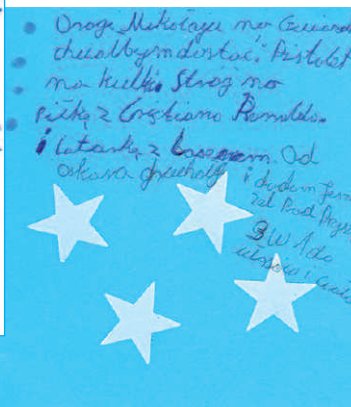 Drogi Mikołaju na Gwiazd
chciałbym dostać: Pistolet
na kulki Strój na
piłkę z Cristiano Ronaldo.
i latarkę z laserem. Od
Oskara
i
żel
3W1 do
włosów i ciała